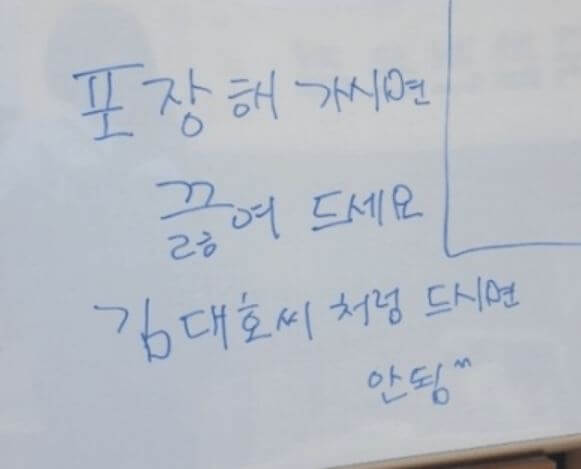 포장해 가시면
끓여 드세요
김대호씨 처럼 드시면
안됨^^